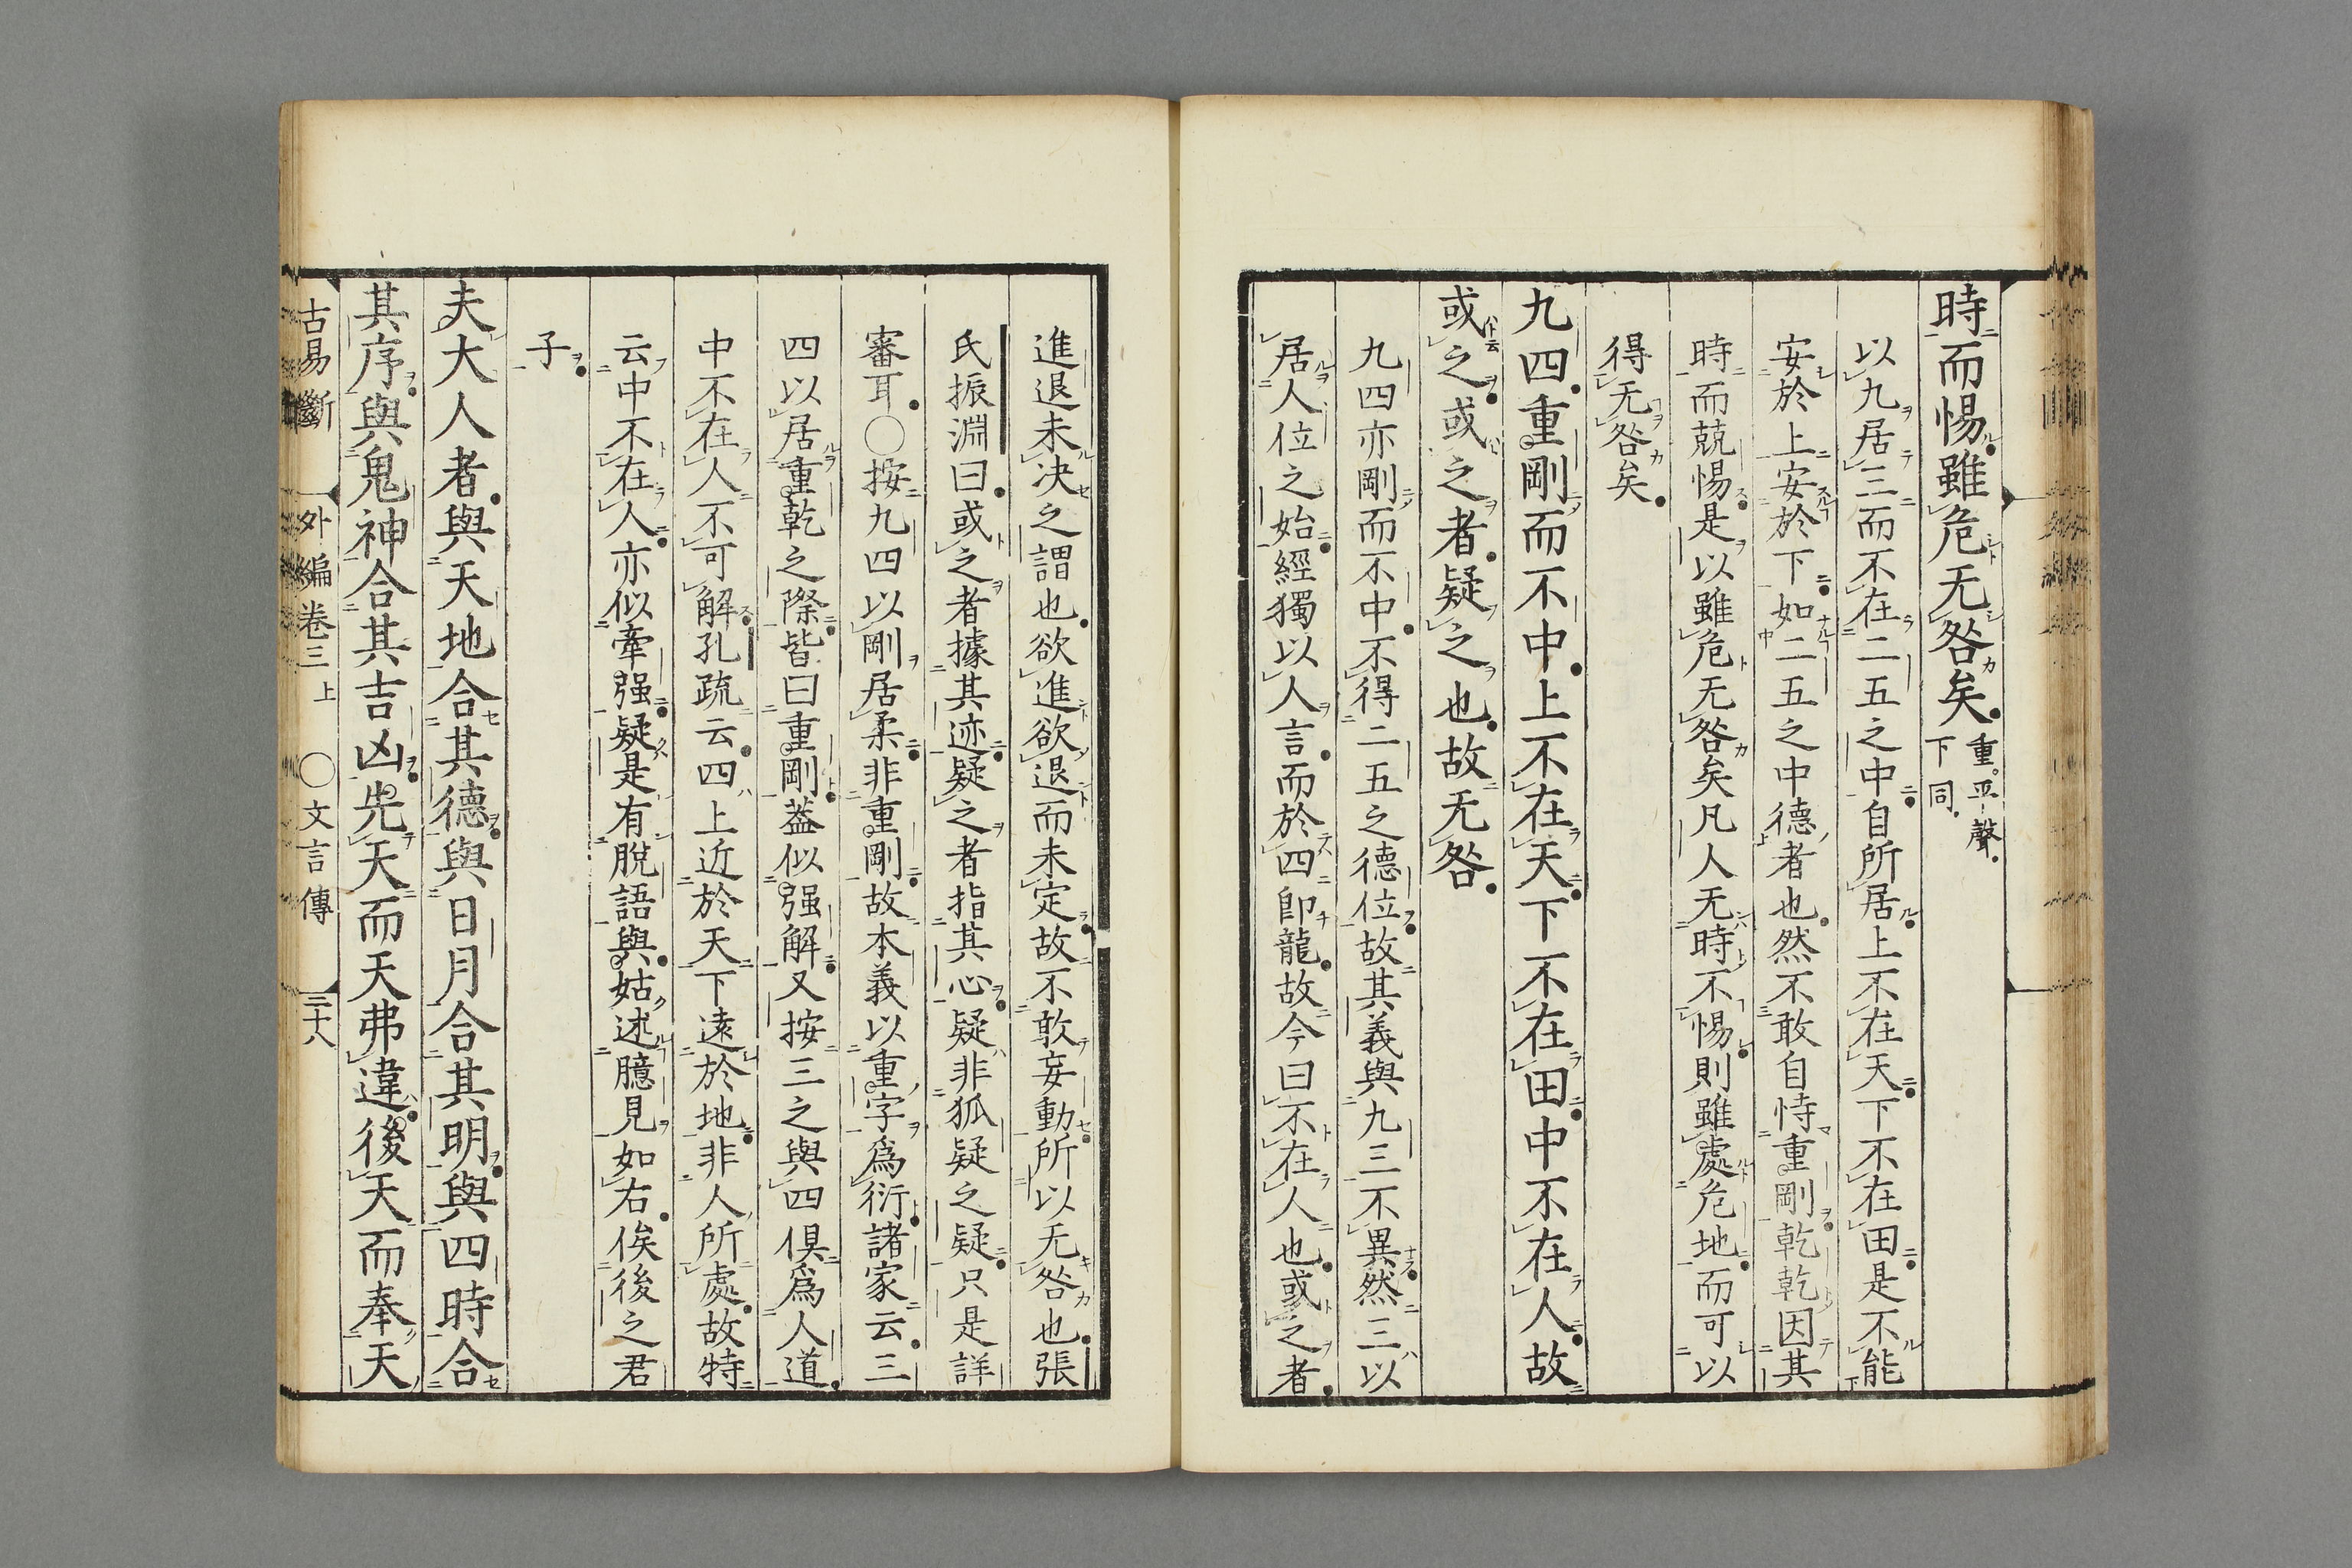 時而惕雖危无咎矣重平聲下同
以九居三而不在二五之中自所居上不在天下不在田是不能
安於上安於下如二五之中德者也然不敢自恃重剛乾乾因其
時而兢惕是以雖危无咎矣凡人无時不惕則雖處危地而可以
得无咎矣
九四重剛而不中上不在天下不在田中不在人故
或之或之者疑之也故无咎
九四亦剛而不中不得二五之德位故其義與九三不異然三以
居人位之始經獨以人言而於四卽龍故今曰不在人也或之者
進退未决之謂也欲進欲退而未定故不敢妄動所以无咎也張
氏振淵曰或之者據其迹疑之者指其心疑非狐疑之疑只是詳
審耳〇按九四以剛居柔非重剛故本義以重字爲衍諸家云三
四以居重乾之際皆曰重剛蓋似强解又按三之與四俱爲人道
中不在人不可解孔疏云四上近於天下遠於地非人所處故特
云中不在人亦似牽强疑是有脫語與姑述臆見如右俟後之君
子
夫大人者與天地合其德與日月合其明與四時合
其序與鬼神合其吉凶先天而天弗違後天而奉天
古易斷 外編卷三上 〇文言傳 三十八